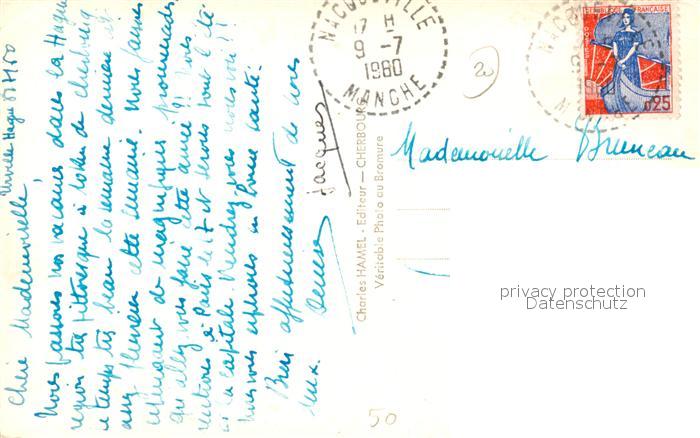 Urville Hague
Chère Mademoiselle,
Nous passons nos vacances dans La Hague
région très pittoresque à 10km de cherbourg
temps très beau la semaine dernière et
cette semaine. Nous faisons
de magnifiques promenades
que allez vous faire cette année?!
à Paris le 17 et serons tout l'été
la capitale. Viendrez vous nous voir?!
en bonne santé.
Bien affectueusement de nous
deux.
Denise
Jacques
Charles HAMEL - Editeur - CHERBOURG
Véritable Photo au Bromure
NACQUEVILLE
17 H
9 -7
1960
MANCHE
20
REPUBLIQUE FRANCAISE
0,25
Mademoiselle Bruneau
privacy protection
Datenschutz
50